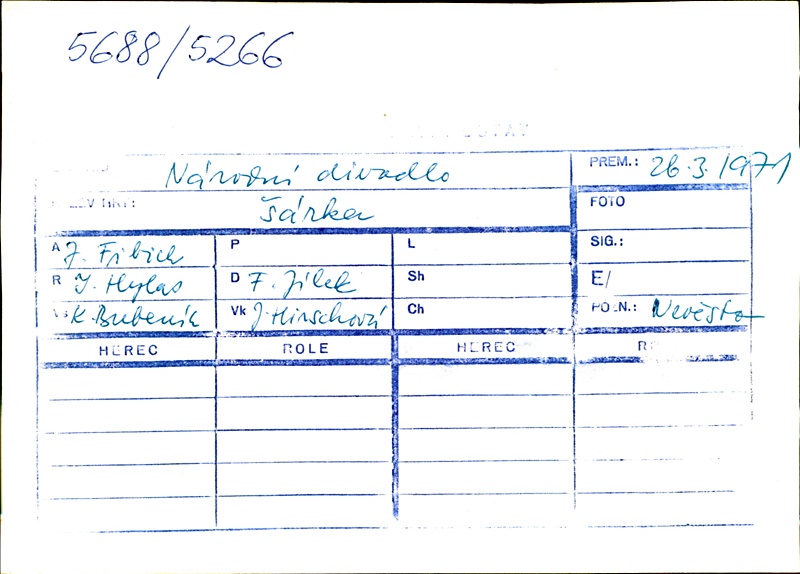 5688/5266
Národní divadlo
PREM.: 26.3.1971
Šárka
FOTO
A J. Fibich
P
L
SIG.:
R J. Hylas
D F. Jílek
Sh
E/
K. Bubeník
Vk J. Hirschová
Ch
POZN.: Nevěsta
HEREC ROLE HEREC